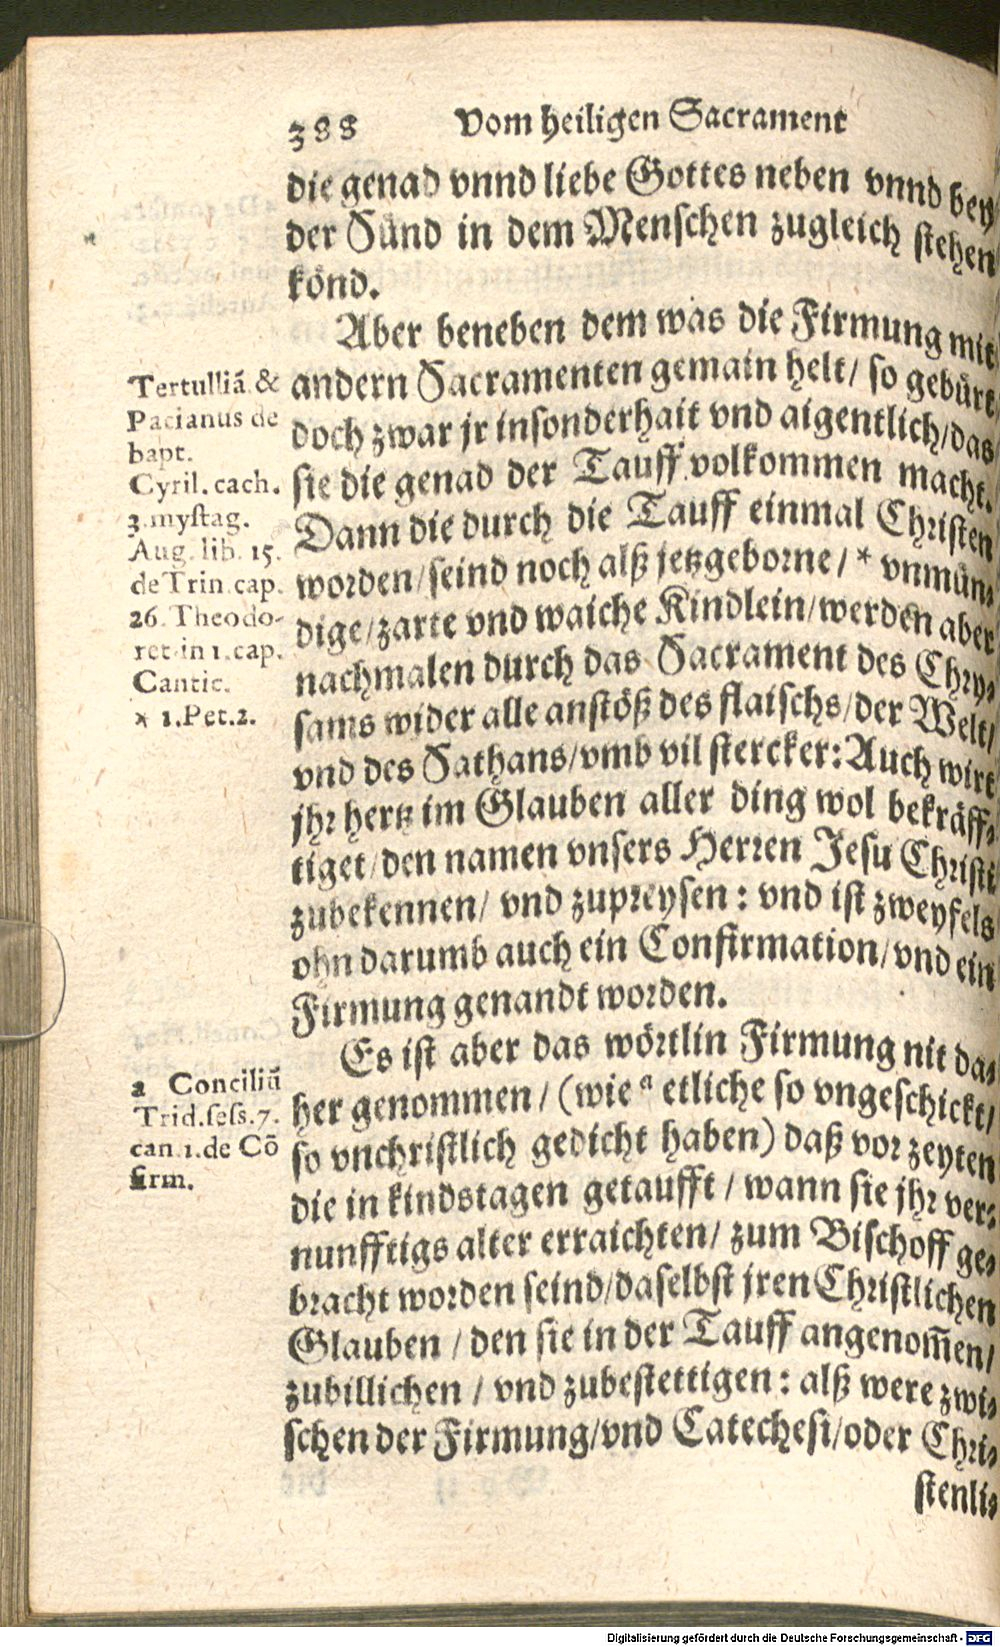 388 Vom heiligen Sacrament
die genad vnnd liebe Gottes neben vnnd bey
der Sünd in dem Menschen zugleich stehen
könd.
Aber beneben dem was die Firmung mit
andern Sacramenten gemain helt/ so gebürt
doch zwar jr insonderhait vnd aigentlich/das
sie die genad der Tauff volkommen macht.
Dann die durch die Tauff einmal Christen
worden/seind noch alß jetzgeborne/ * vnmün-
dige/zarte vnd waiche Kindlein/werden aber
nachmalen durch das Sacrament des Chry-
sams wider alle anstöß des flaischs/der Welt/
vnd des Sathans/vmb vil stercker: Auch wirt
jhr hertz im Glauben aller ding wol bekräff-
tiget/den namen vnsers Herren Jesu Christi
zubekennen/ vnd zupreysen: vnd ist zweyfels
ohn darumb auch ein Confirmation/vnd ein
Firmung genandt worden.
Es ist aber das wörtlin Firmung nit da-
her genommen/ (wie a etliche so vngeschickt/
so vnchristlich gedicht haben) daß vor zeyten
die in kindstagen getaufft/ wann sie jhr ver-
nunfftigs alter erraichten/ zum Bischoff ge-
bracht worden seind/daselbst jren Christlichen
Glauben/ den sie in der Tauff angenom̃en/
zubillichen/ vnd zubestettigen: alß were zwi-
schen der Firmung/vnd Catechesi/oder Chri-
stenli-
Tertulliã &
Pacianus de
bapt.
Cyril. cach.
3. mystag.
Aug. lib. 15.
de Trin. cap.
26. Theodo-
ret in 1. cap.
Cantic.
* 1. Pet. 2.
a Conciliũ
Trid. sess. 7.
can. 1. de Cõ
firm.
Digitalisierung gefördert durch die Deutsche Forschungsgemeinschaft - DFG